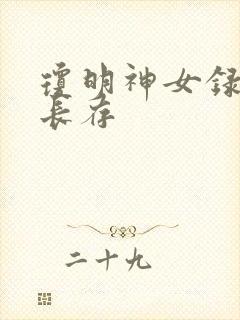 琼明神女録
長存
二十九